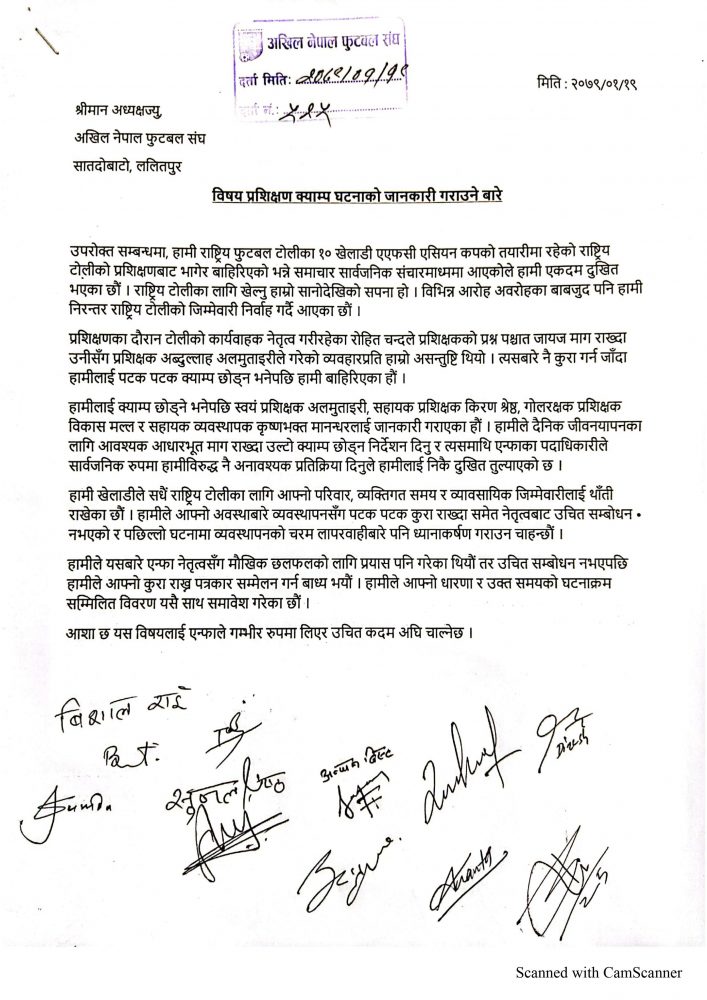 अखिल नेपाल फुटबल संघ
दर्ता मिति: २०७९/०१/१९
दर्ता नं.: ५२५
मिति : २०७९/०१/१९
श्रीमान अध्यक्षज्यु,
अखिल नेपाल फुटबल संघ
सातदोबाटो, ललितपुर
विषय प्रशिक्षण क्याम्प घटनाको जानकारी गराउने बारे
उपरोक्त सम्बन्धमा, हामी राष्ट्रिय फुटबल टोलीका १० खेलाडी एएफसी एसियन कपको तयारीमा रहेको राष्ट्रिय
टोलीको प्रशिक्षणबाट भागेर बाहिरिएको भन्ने समाचार सार्वजनिक संचारमाध्यममा आएकोले हामी एकदम दुखित
भएका छौं । राष्ट्रिय टोलीका लागि खेल्नु हाम्रो सानोदेखिको सपना हो । विभिन्न आरोह अवरोहका बाबजुद पनि हामी
निरन्तर राष्ट्रिय टोलीको जिम्मेवारी निर्वाह गर्दै आएका छौं ।
प्रशिक्षणका दौरान टोलीको कार्यवाहक नेतृत्व गरीरहेका रोहित चन्दले प्रशिक्षकको प्रश्न पश्चात जायज माग राख्दा
उनीसँग प्रशिक्षक अब्दुल्लाह अलमुताइरीले गरेको व्यवहारप्रति हाम्रो असन्तुष्टि थियो । त्यसबारे नै कुरा गर्न जाँदा
हामीलाई पटक पटक क्याम्प छोड्न भनेपछि हामी बाहिरिएका हौं ।
हामीलाई क्याम्प छोड्ने भनेपछि स्वयं प्रशिक्षक अलमुताइरी, सहायक प्रशिक्षक किरण श्रेष्ठ, गोलरक्षक प्रशिक्षक
विकास मल्ल र सहायक व्यवस्थापक कृष्णभक्त मानन्धरलाई जानकारी गराएका हौं । हामीले दैनिक जीवनयापनका
लागि आवश्यक आधारभूत माग राख्दा उल्टो क्याम्प छोड्न निर्देशन दिनु र त्यसमाथि एन्फाका पदाधिकारीले
सार्वजनिक रुपमा हामीविरुद्ध नै अनावश्यक प्रतिक्रिया दिनुले हामीलाई निकै दुखित तुल्याएको छ ।
हामी खेलाडीले सधैं राष्ट्रिय टोलीका लागि आफ्नो परिवार, व्यक्तिगत समय र व्यावसायिक जिम्मेवारीलाई थाँती
राखेका छौं । हामीले आफ्नो अवस्थाबारे व्यवस्थापनसँग पटक पटक कुरा राख्दा समेत नेतृत्वबाट उचित सम्बोधन
नभएको र पछिल्लो घटनामा व्यवस्थापनको चरम लापरवाहीबारे पनि ध्यानाकर्षण गराउन चाहन्छौं ।
हामीले यसबारे एन्फा नेतृत्वसँग मौखिक छलफलको लागि प्रयास पनि गरेका थियौं तर उचित सम्बोधन नभएपछि
हामीले आफ्नो कुरा राख्न पत्रकार सम्मेलन गर्न बाध्य भयौं । हामीले आफ्नो धारणा र उक्त समयको घटनाक्रम
सम्मिलित विवरण यसै साथ समावेश गरेका छौं ।
आशा छ यस विषयलाई एन्फाले गम्भीर रुपमा लिएर उचित कदम अघि चाल्नेछ ।
बिशाल राई
Dinesh
Ananta
Scanned with CamScanner